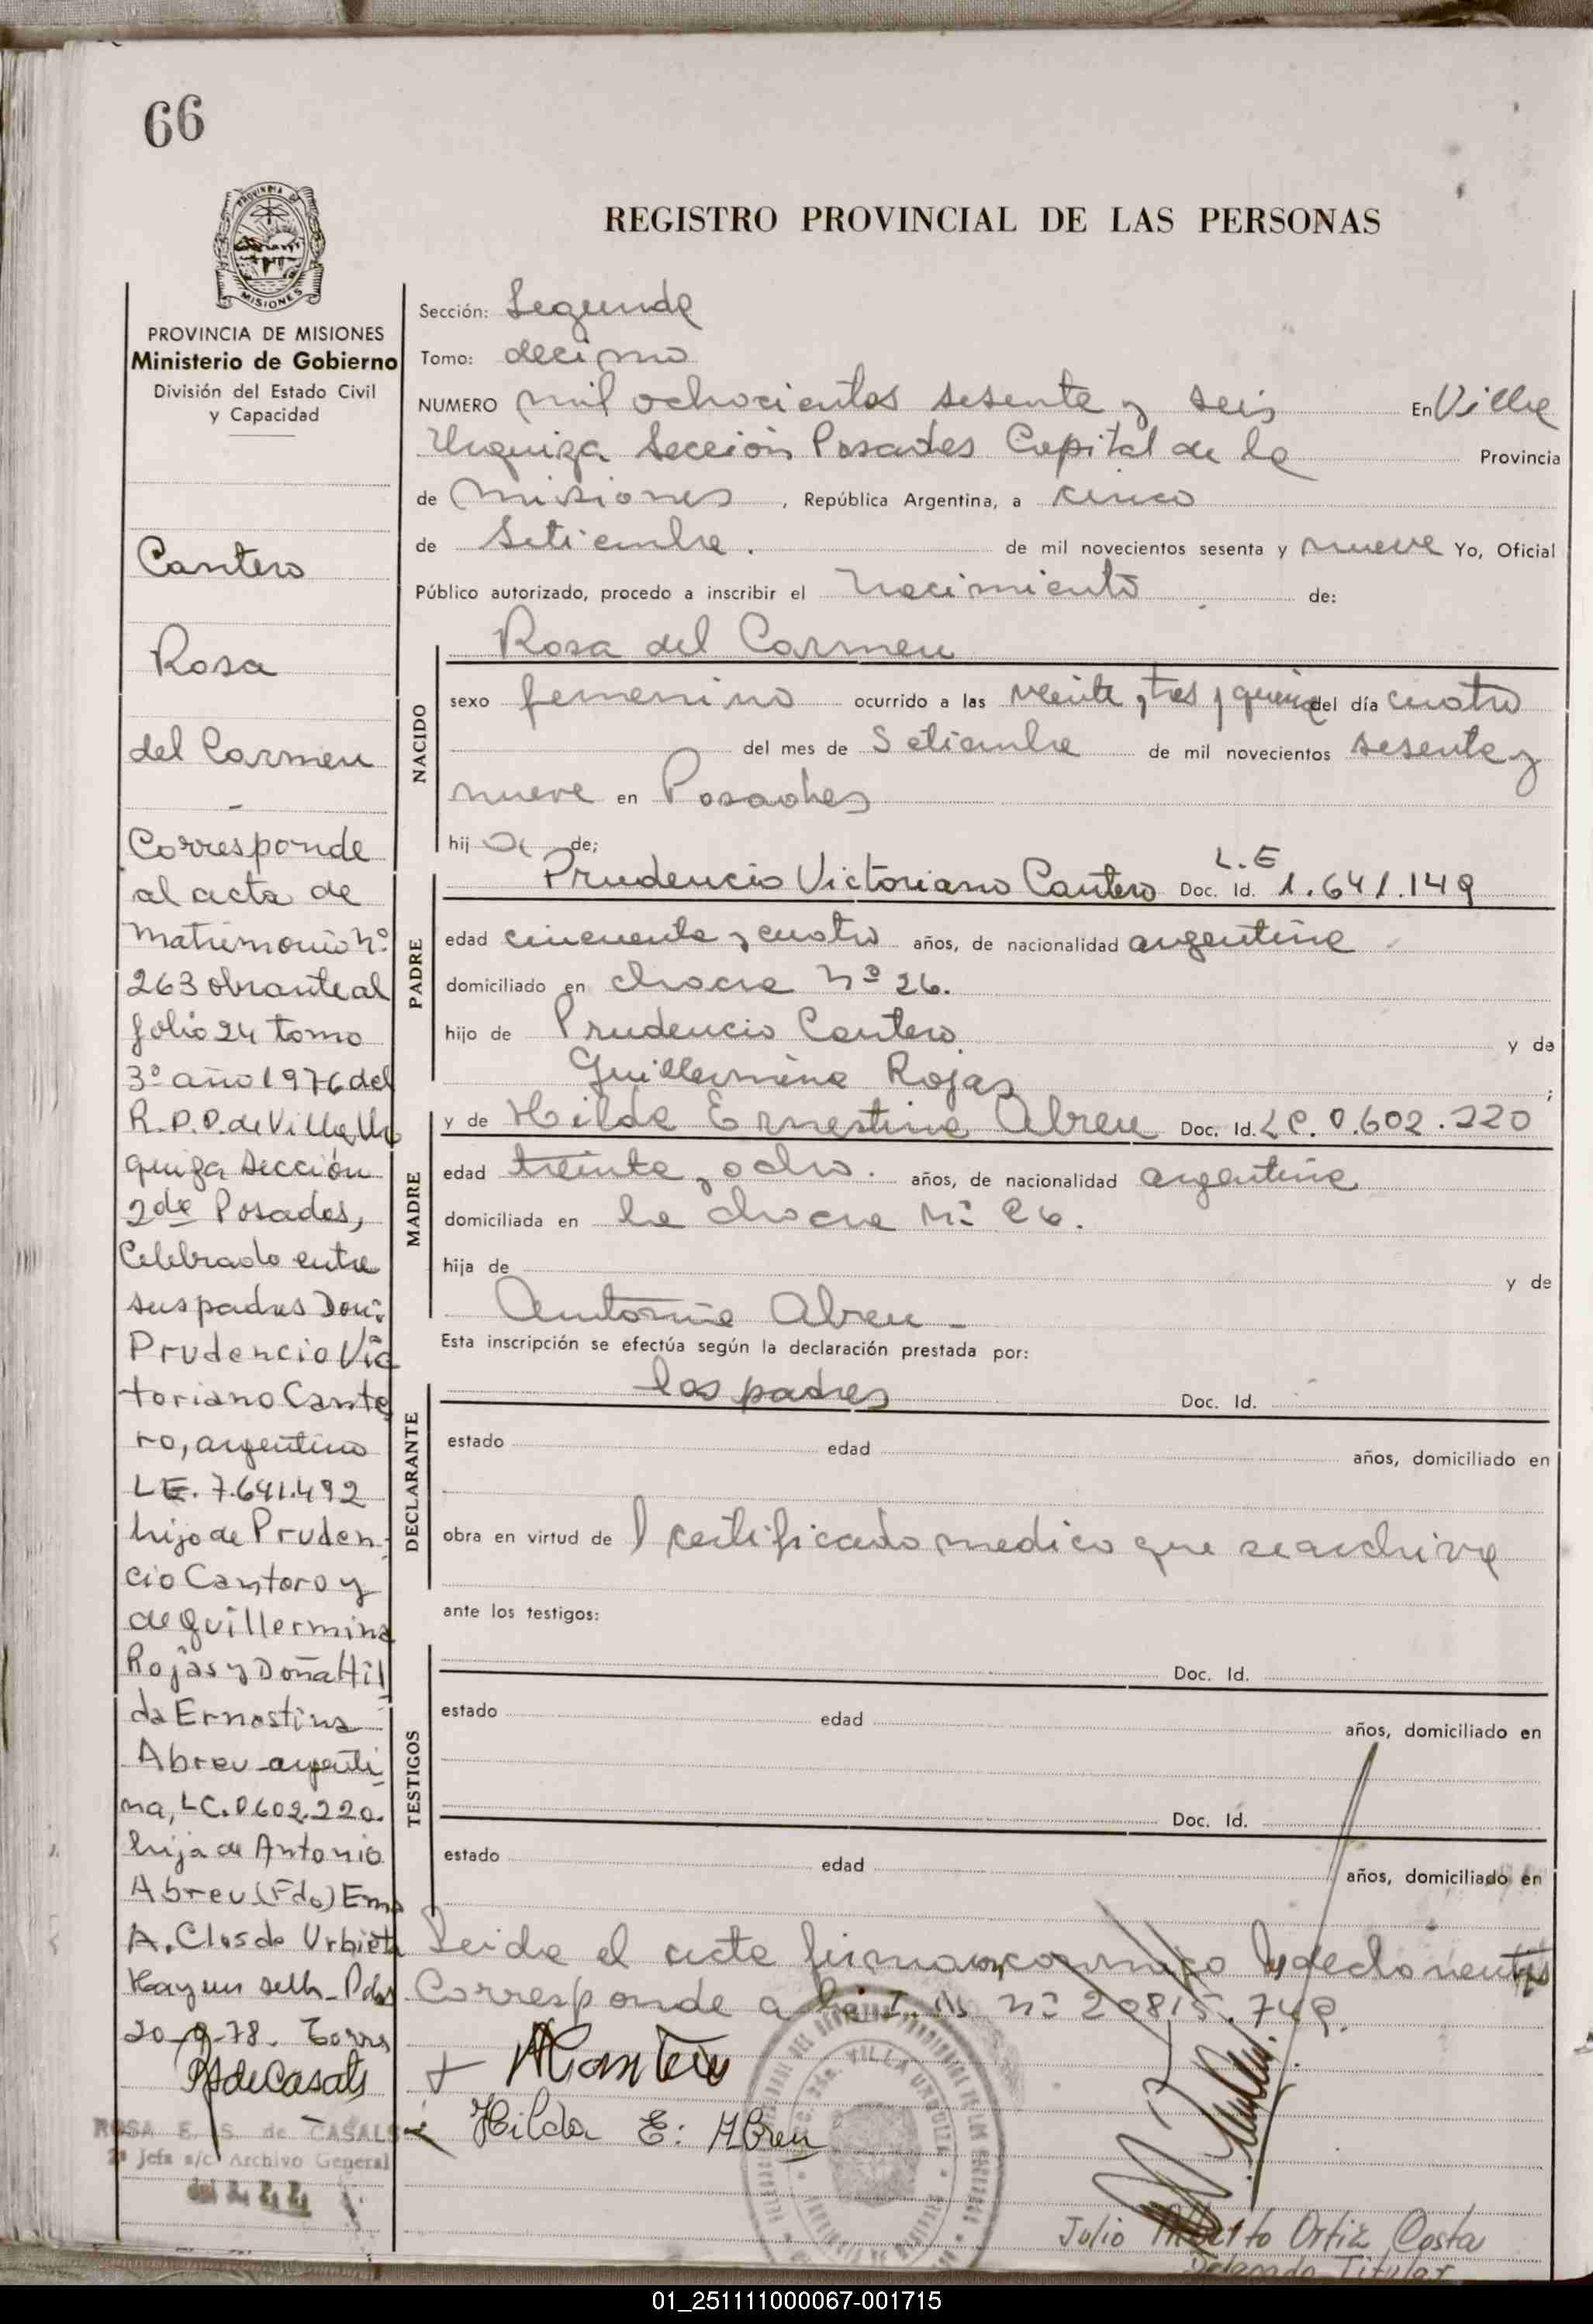 66
PROVINCIA DE
MISIONES
PROVINCIA DE MISIONES
Ministerio de Gobierno
División del Estado Civil
y Capacidad
Cantero
Rosa
del Carmen
-
Corresponde
al acta de
matrimonio nº
263 obrante al
folio 24 tomo
3º año 1976 del
R.P.P. de Villa Ur
quiza sección
2da Posadas,
Celebrado entre
sus padres Don:
Prudencio Vic
toriano Cante
ro, argentino
LE. 7.641.492
hijo de Pruden
cio Cantero y
de Guillermina
Rojas y Doña Hil
da Ernestina
Abreu argenti
na, LC.0.602.220.
hija de Antonio
Abreu (Fdo) Ema
A. Clos de Urbieta
Hay un sello - Pdas
20-9-78. Torres
RSdeCasals
ROSA E. S. de CASALS
2ª Jefa a/c Archivo General
REGISTRO PROVINCIAL DE LAS PERSONAS
Sección: Segunda
Tomo: decimo
NUMERO mil ochocientos sesenta y seis En Villa
Urquiza Sección Posadas Capital de la Provincia
de Misiones, República Argentina, a cinco
de Setiembre. de mil novecientos sesenta y nueve Yo, Oficial
Público autorizado, procedo a inscribir el nacimiento de:
NACIDO
Rosa del Carmen
sexo femenino ocurrido a las veinte y tres y quince del día cuatro
del mes de Setiembre de mil novecientos sesenta y
nueve en Posadas
hija de;
PADRE
L.E
Prudencio Victoriano Cantero Doc. Id. 1.641.149
edad cincuenta y cuatro años, de nacionalidad argentina
domiciliado en chacra Nº 26.
hijo de Prudencio Cantero y de
Guillermina Rojas ;
MADRE
y de Hilda Ernestina Abreu Doc. Id. LC. 0.602.220
edad treinta y ocho. años, de nacionalidad argentina
domiciliada en la chacra Nº 26.
hija de y de
Antonia Abreu -
Esta inscripción se efectúa según la declaración prestada por:
DECLARANTE
los padres Doc. Id.
estado edad años, domiciliado en
obra en virtud de l certificado medico que se archiva
ante los testigos:
TESTIGOS
Doc. Id.
estado edad años, domiciliado en
Doc. Id.
estado edad años, domiciliado en
Leida el acta firman conmigo los declarantes
Corresponde a la I. N nº 20815.749.
+ Hilda E: Abreu
VILLA URQUIZA
Julio Alberto Ortiz Costa
Delegado Titular
01_251111000067-001715